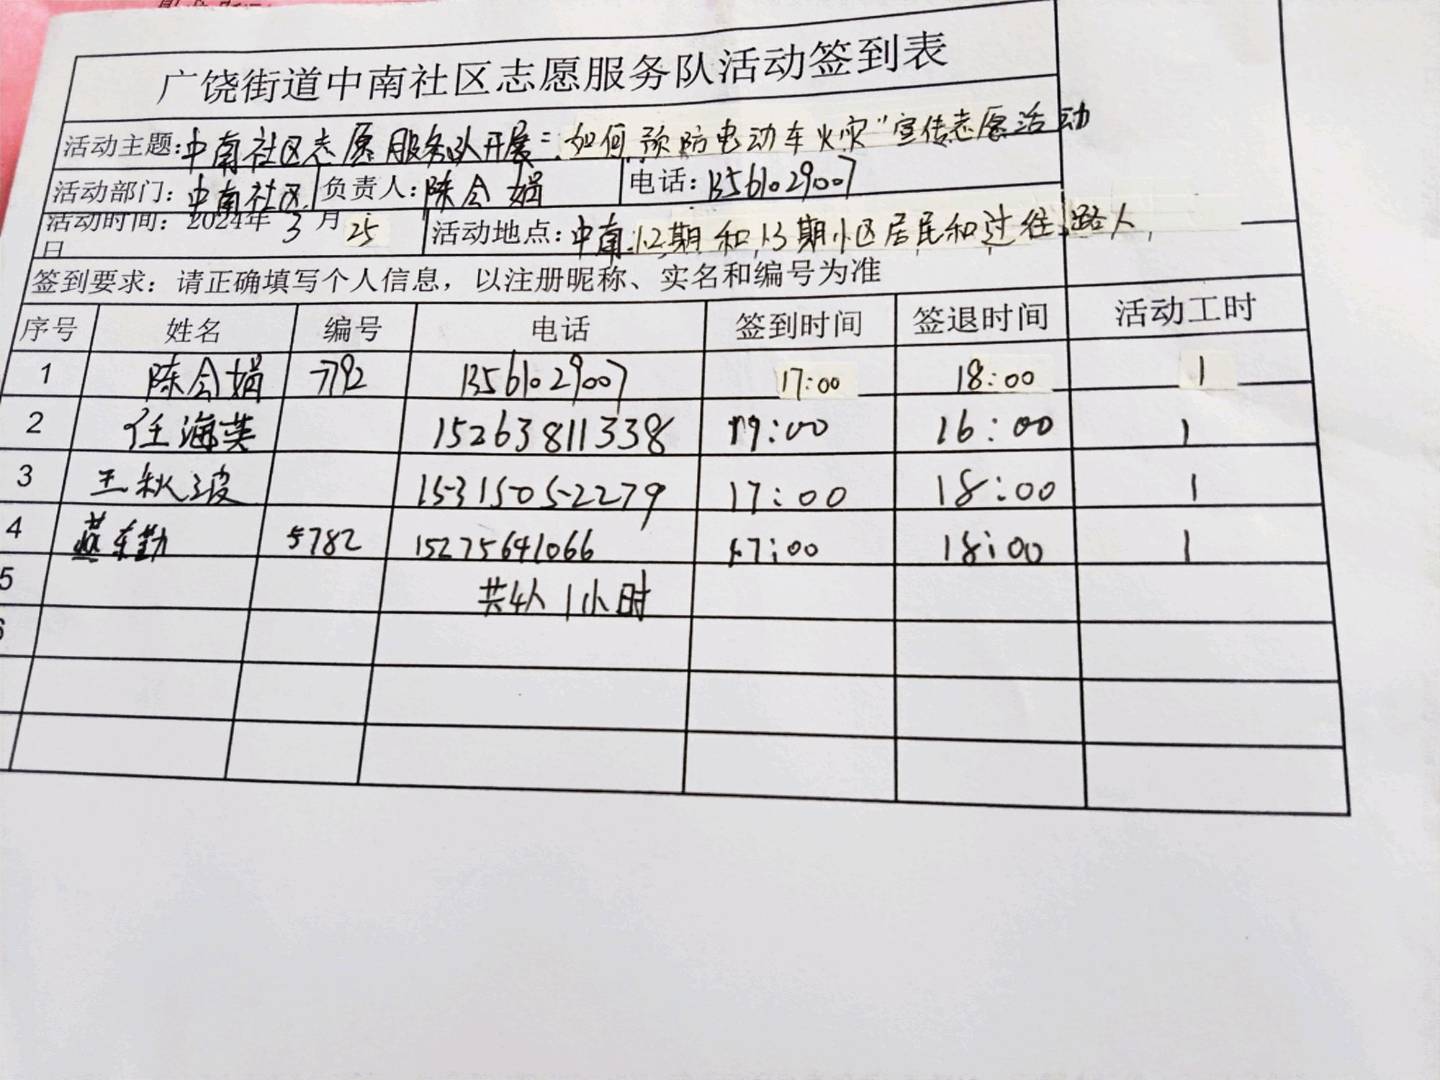 广饶街道中南社区志愿服务队活动签到表
活动主题:中南社区志愿服务队开展"如何预防电动车火灾"宣传志愿活动
活动部门:中南社区 负责人:陈令娟 电话:13561029007
活动时间:2024年3月25 活动地点:中南12期和13期小区居民和过往路人
日
签到要求:请正确填写个人信息,以注册昵称、实名和编号为准
序号 姓名 编号 电话 签到时间 签退时间 活动工时
1 陈令娟 7792 13561029007 17:00 18:00 1
2 任海英 15263811338 17:00 16:00 1
3 王秋波 15315052279 17:00 18:00 1
4 燕东勤 5782 15275641066 17:00 18:00 1
5 共4人1小时
6